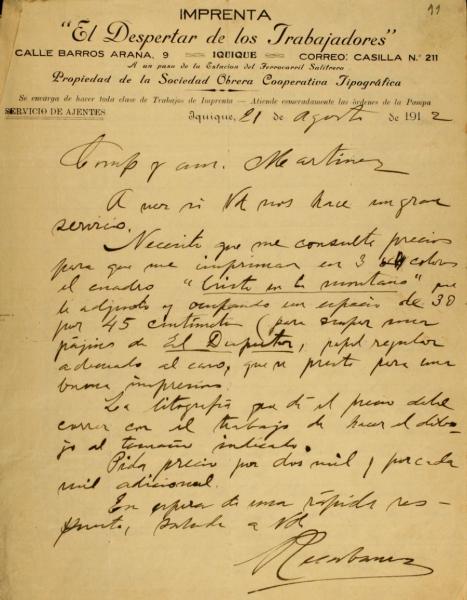 11
IMPRENTA
"El Despertar de los Trabajadores"
CALLE BARROS ARANA, 9 IQUIQUE CORREO: CASILLA N.° 211
A un paso de la Estacion del Ferrocarril Salitrero
Propiedad de la Sociedad Obrera Cooperativa Tipográfica
Se encarga de hacer toda clase de Trabajos de Imprenta — Atiende esmeradamente las órdenes de la Pampa
SERVICIO DE AJENTES
Iquique, 21 de Agosto de 1912
Comp y am. Martinez
A ver si Vd nos hace un gran
servicio.
Necesito que me consulte precios
para que me impriman en 3 colores
el cuadro "Cristo en la montaña" que
le adjunto y ocupando un espacio de 30
por 45 centimetros (para
pájina de El Despertar, papel regular
adecuado al caso, que se preste para una
buena impresion.
La litografía que dé el precio debe
correr con el trabajo de hacer el dibu-
jo al tamaño indicado.
Pida precio por dos mil y por cada
mil adicional.
En espera de una rápida res-
puesta, saluda a Vd
Recabarren